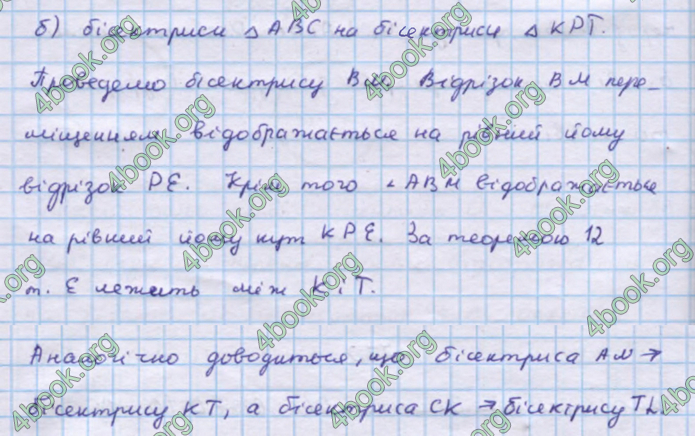 б) бісектриси △ ABC на бісектриси △ KPT.
Проведемо бісектрису BM. Відрізок BM пере-
міщенням відображається на рівний йому
відрізок PE. Крім того ∠ABM відображається
на рівний йому кут KPE. За теоремою 12
т. E лежить між K і T.
Аналогічно доводиться, що бісектриса AN →
бісектрису KT, а бісектриса CK → бісектрису TL.
4book.org